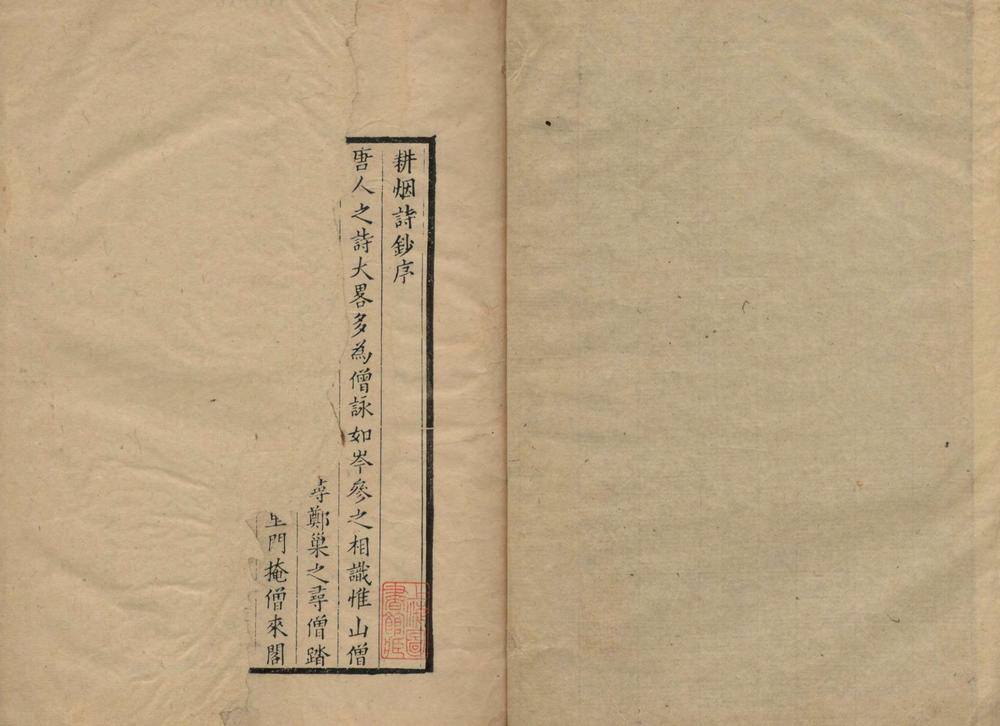 耕烟詩鈔序
唐人之詩大畧多為僧詠如岑參之相識惟山僧
尋鄭巢之尋僧踏
門掩僧來閣
上海圖書館藏